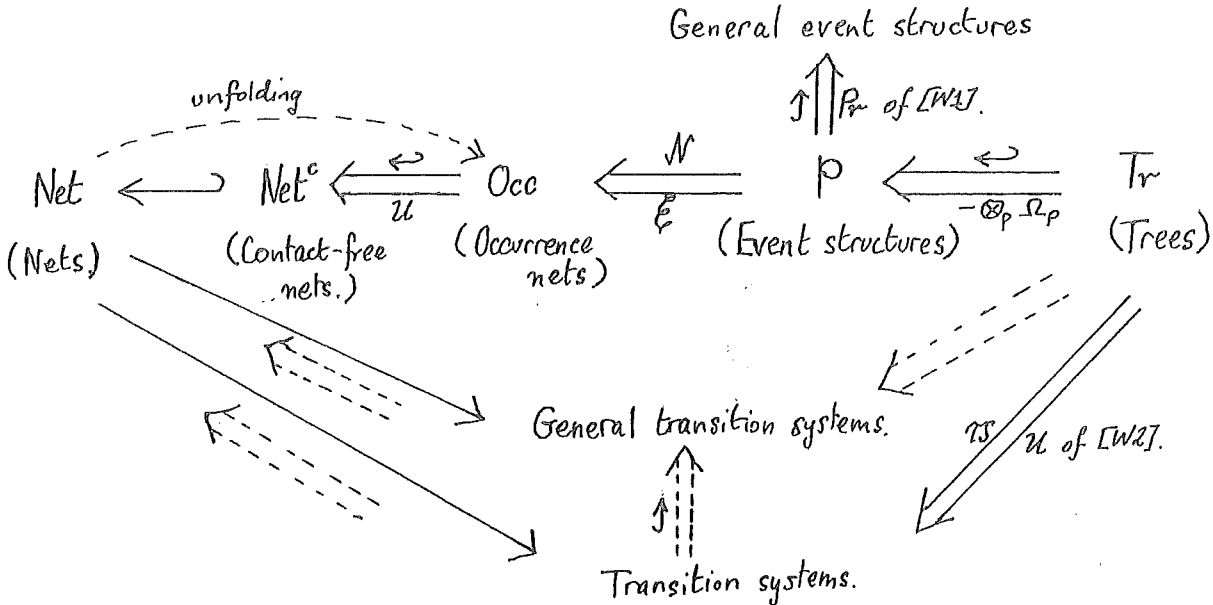 General event structures
unfolding
Pr of [W1].
N
Net Netᶜ Occ P Tr
U
ξ
-⊗ₚ Ωₚ
(Nets) (Contact-free nets.) (Occurrence nets) (Event structures) (Trees)
General transition systems.
TS
U of [W2].
Transition systems.